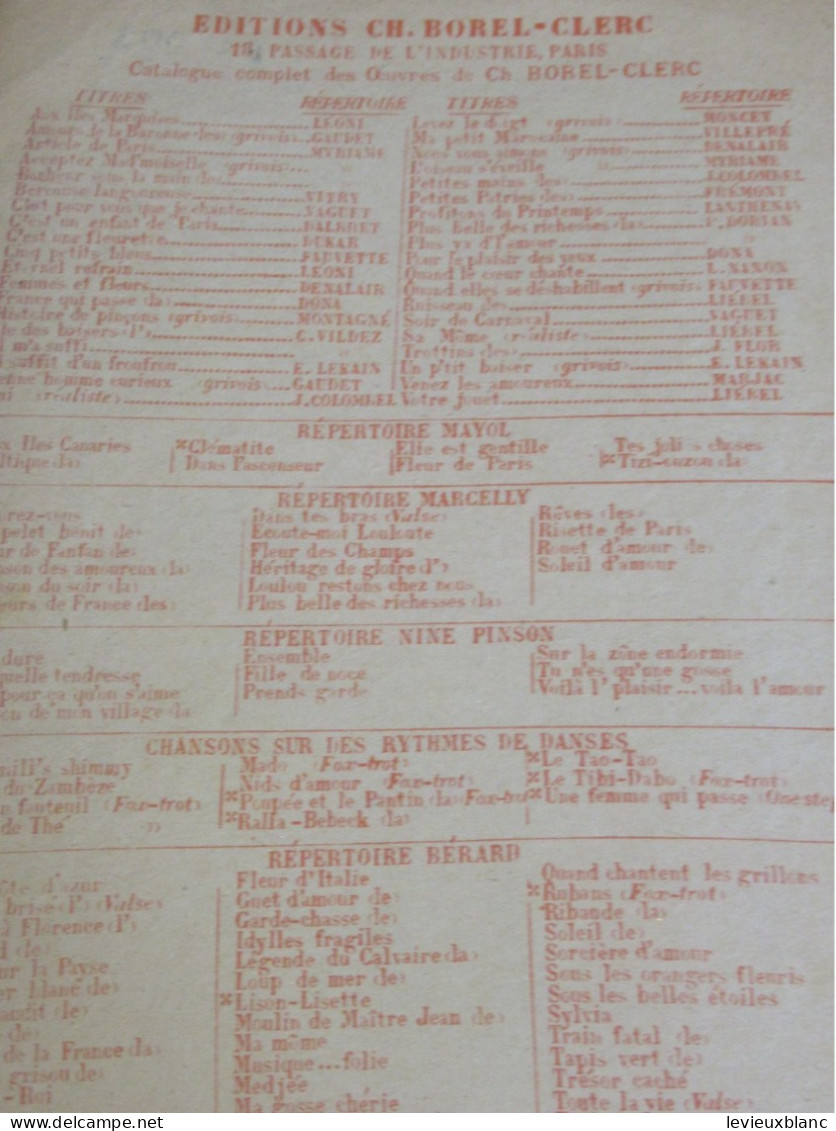 EDITIONS CH. BOREL-CLERC
18, PASSAGE DE L'INDUSTRIE, PARIS
Catalogue complet des Œuvres de Ch. BOREL-CLERC
TITRES RÉPERTOIRE
Aux Iles Marquises LÉONI
Amours de la Baronne (les) (grivois) GAUDET
Article de Paris MYRIAME
Acceptez Mad'moiselle (grivois) "
Bonheur sous la main (le) "
Berceuse langoureuse VITRY
C'est pour vous que je chante VAGUET
C'est un enfant de Paris DALBRET
C'est une fleurette DUKAR
Cinq petits bleus FAUVETTE
Eternel refrain LÉONI
Femmes et fleurs DENALAIR
France qui passe (la) DONA
Histoire de pinçons (grivois) MONTAGNÉ
le des baisers (l') C. VILDEZ
m'a suffi "
suffit d'un froufrou E. LEKAIN
enne homme curieux (grivois) GAUDET
ni (réaliste) J. COLOMBEL
TITRES RÉPERTOIRE
Levez le doigt (grivois) MONCEY
Ma petit Marocaine VILLEPRÉ
Nous vous aimons (grivois) DENALAIR
L'oiseau s'éveille MYRIAME
Petites mains (les) J. COLOMBEL
Petites Patries (les) FRÉMONT
Profitons du Printemps LANTHENAY
Plus belle des richesses (la) P. DORIAN
Plus ya d'l'amour "
Pour le plaisir des yeux DONA
Quand le cœur chante L. NANON
Quand elles se déshabillent (grivois) FAUVETTE
Ruisseau (le) LIÉBEL
Soir de Carnaval VAGUET
Sa Môme (réaliste) LIÉBEL
Trottins (les) J. FLOR
Un p'tit baiser (grivois) E. LEKAIN
Venez les amoureux MARJAC
Votre jouet LIÉBEL
RÉPERTOIRE MAYOL
x Iles Canaries ×Clématite Elle est gentille Tes jolies choses
ltique (la) Dans l'ascenseur Fleur de Paris ×Tizi-ouzou (la)
RÉPERTOIRE MARCELLY
rez-vous
pelet bénit (le)
ur de Fanfan (le)
nson des amoureux (la)
nson du soir (la)
eurs de France (les)
Dans tes bras (Valse)
Ecoute-moi Louloute
Fleur des Champs
Héritage de gloire (l')
Loulou restons chez nous
Plus belle des richesses (la)
Rêves (les)
Risette de Paris
Rouet d'amour (le)
Soleil d'amour
RÉPERTOIRE NINE PINSON
dure
uelle tendresse
pour ça qu'on s'aime
on de mon village (la
Ensemble
Fille de noce
Prends garde
Sur la zône endormie
Tu n'es qu'une gosse
Voilà l'plaisir... voilà l'amour
CHANSONS SUR DES RYTHMES DE DANSES
mill's shimmy
du Zambèze
n fauteuil (Fox-trot)
de Thé ")
Mado (Fox-trot)
Nids d'amour (Fox-trot)
×Poupée et le Pantin (la) (Fox-trot
×Ralla-Bebeck (la)
×Le Tao-Tao
×Le Tibi-Dabo (Fox-trot)
×Une femme qui passe (One step
RÉPERTOIRE BÉRARD
ôte d'azur
brisé (l') (Valse)
à Florence (l')
d (le)
ur la Payse
er blanc (le)
araït (le)
(le)
de la France (la)
grisou (le)
-Roi
Fleur d'Italie
Guet d'amour (le)
Garde-chasse (le)
Idylles fragiles
Légende du Calvaire (la)
Loup de mer (le)
×Lison-Lisette
Moulin de Maître Jean (le)
Ma môme
Musique... folie
Medjée
Ma gosse chérie
Quand chantent les grillons
×Rubans (Fox-trot)
Ribaude (la)
Soleil (le)
Sorcière d'amour
Sous les orangers fleuris
Sous les belles étoiles
Sylvia
Train fatal (le)
Tapis vert (le)
Trésor caché
Toute la vie (Valse)
delcampe.net
levieuxblanc